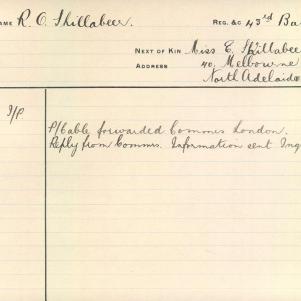 NAME R. O. Shillabeer. REG. &C 43rd Ba
NEXT OF KIN Miss E. Shillabee
ADDRESS 40, Melbourne
North Adelaide
I/P
P/Cable forwarded Commis London.
Reply from Commrs. Information sent Inq